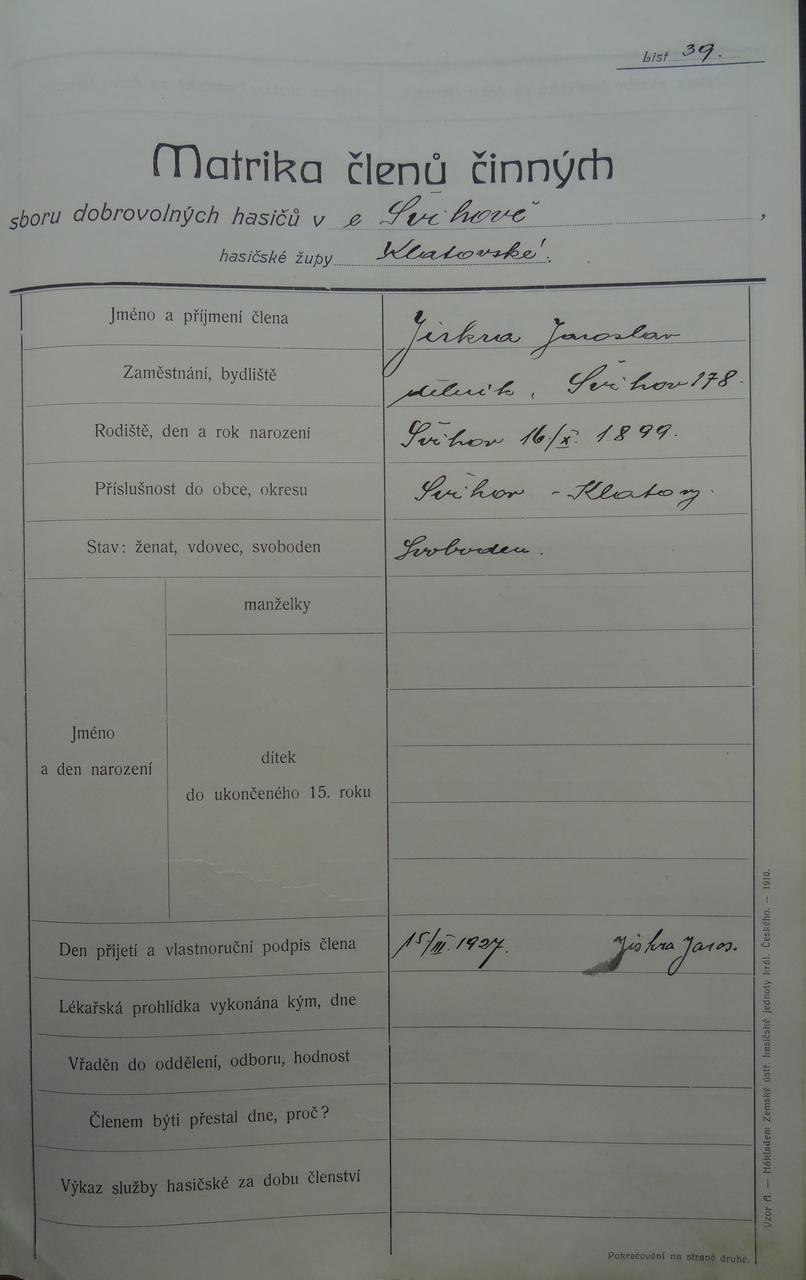 list 39.
Matrika členů činných
sboru dobrovolných hasičů v e Švihově,
hasičské župy Klatovské.
Jméno a příjmení člena Jiskra Jaroslav
Zaměstnání, bydliště dělník, Švihov 178.
Rodiště, den a rok narození Švihov 16/X. 1899.
Příslušnost do obce, okresu Švihov - Klatovy.
Stav: ženat, vdovec, svoboden Svoboden.
manželky
Jméno
a den narození
dítek
do ukončeného 15. roku
Den přijetí a vlastnoruční podpis člena 15/III. 1927. Jiskra Jaros.
Lékařská prohlídka vykonána kým, dne
Vřaděn do oddělení, odboru, hodnost
Členem býti přestal dne, proč?
Výkaz služby hasičské za dobu členství
Pokračování na straně druhé.
Vzor A. — Nákladem Zemské ústř. hasičské jednoty král. Českého. — 1910.